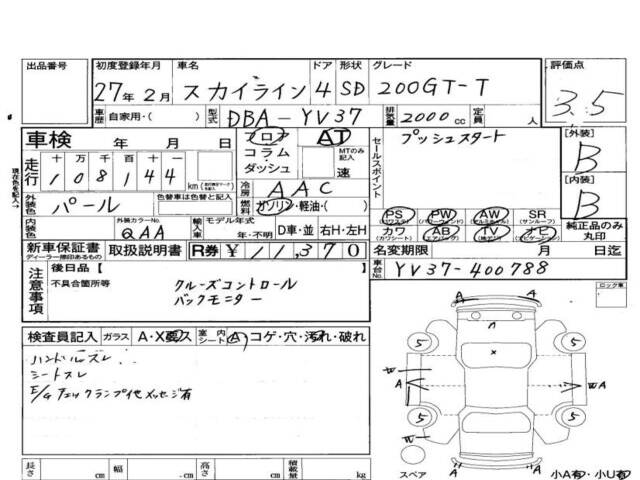 出品番号 初度登録年月 車名 ドア 形状 グレード 評価点
27年2月 スカイライン 4 SD 200GT-T 3.5
車歴 自家用・( ) 型式 DBA-YV37 排気量 2000cc 定員 人
車検 年 月 日 フロア AT プッシュスタート [外装]
B
走行 十 万 千 百 十 一 コラム MTのみ記入 セールスポイント
108144 km ダッシュ 速 [内装]
B
冷房 AAC
外装色 パール 色替車は色替と記入 燃料 ガソリン・軽油・( ) PS PW AW SR
内装色 外装カラーNo. QAA 輸入車 モデル年式 年・不明 D車・並 右H・左H カワ AB TV ナビ 純正品のみ丸印
新車保証書 取扱説明書 R券 ¥11,370 名変期限 月 日迄
ディーラー捺印あるもの
注意事項 後日品 [ ] 車台No. YV37-400788
不具合箇所等 クルーズコントロール
バックモニター
現在色を記入
ロック車
検査員記入 ガラス A・X・要ス 室内シート A コゲ・穴・汚れ・破れ
ハンドルスレ
シートスレ
E/gチェックランプ他メッセージ有
A A
5 5
x
W A W A
5 5
W
スペア A A
長さ cm 幅 cm 高さ cm 積載量 kg 小A有・小U有